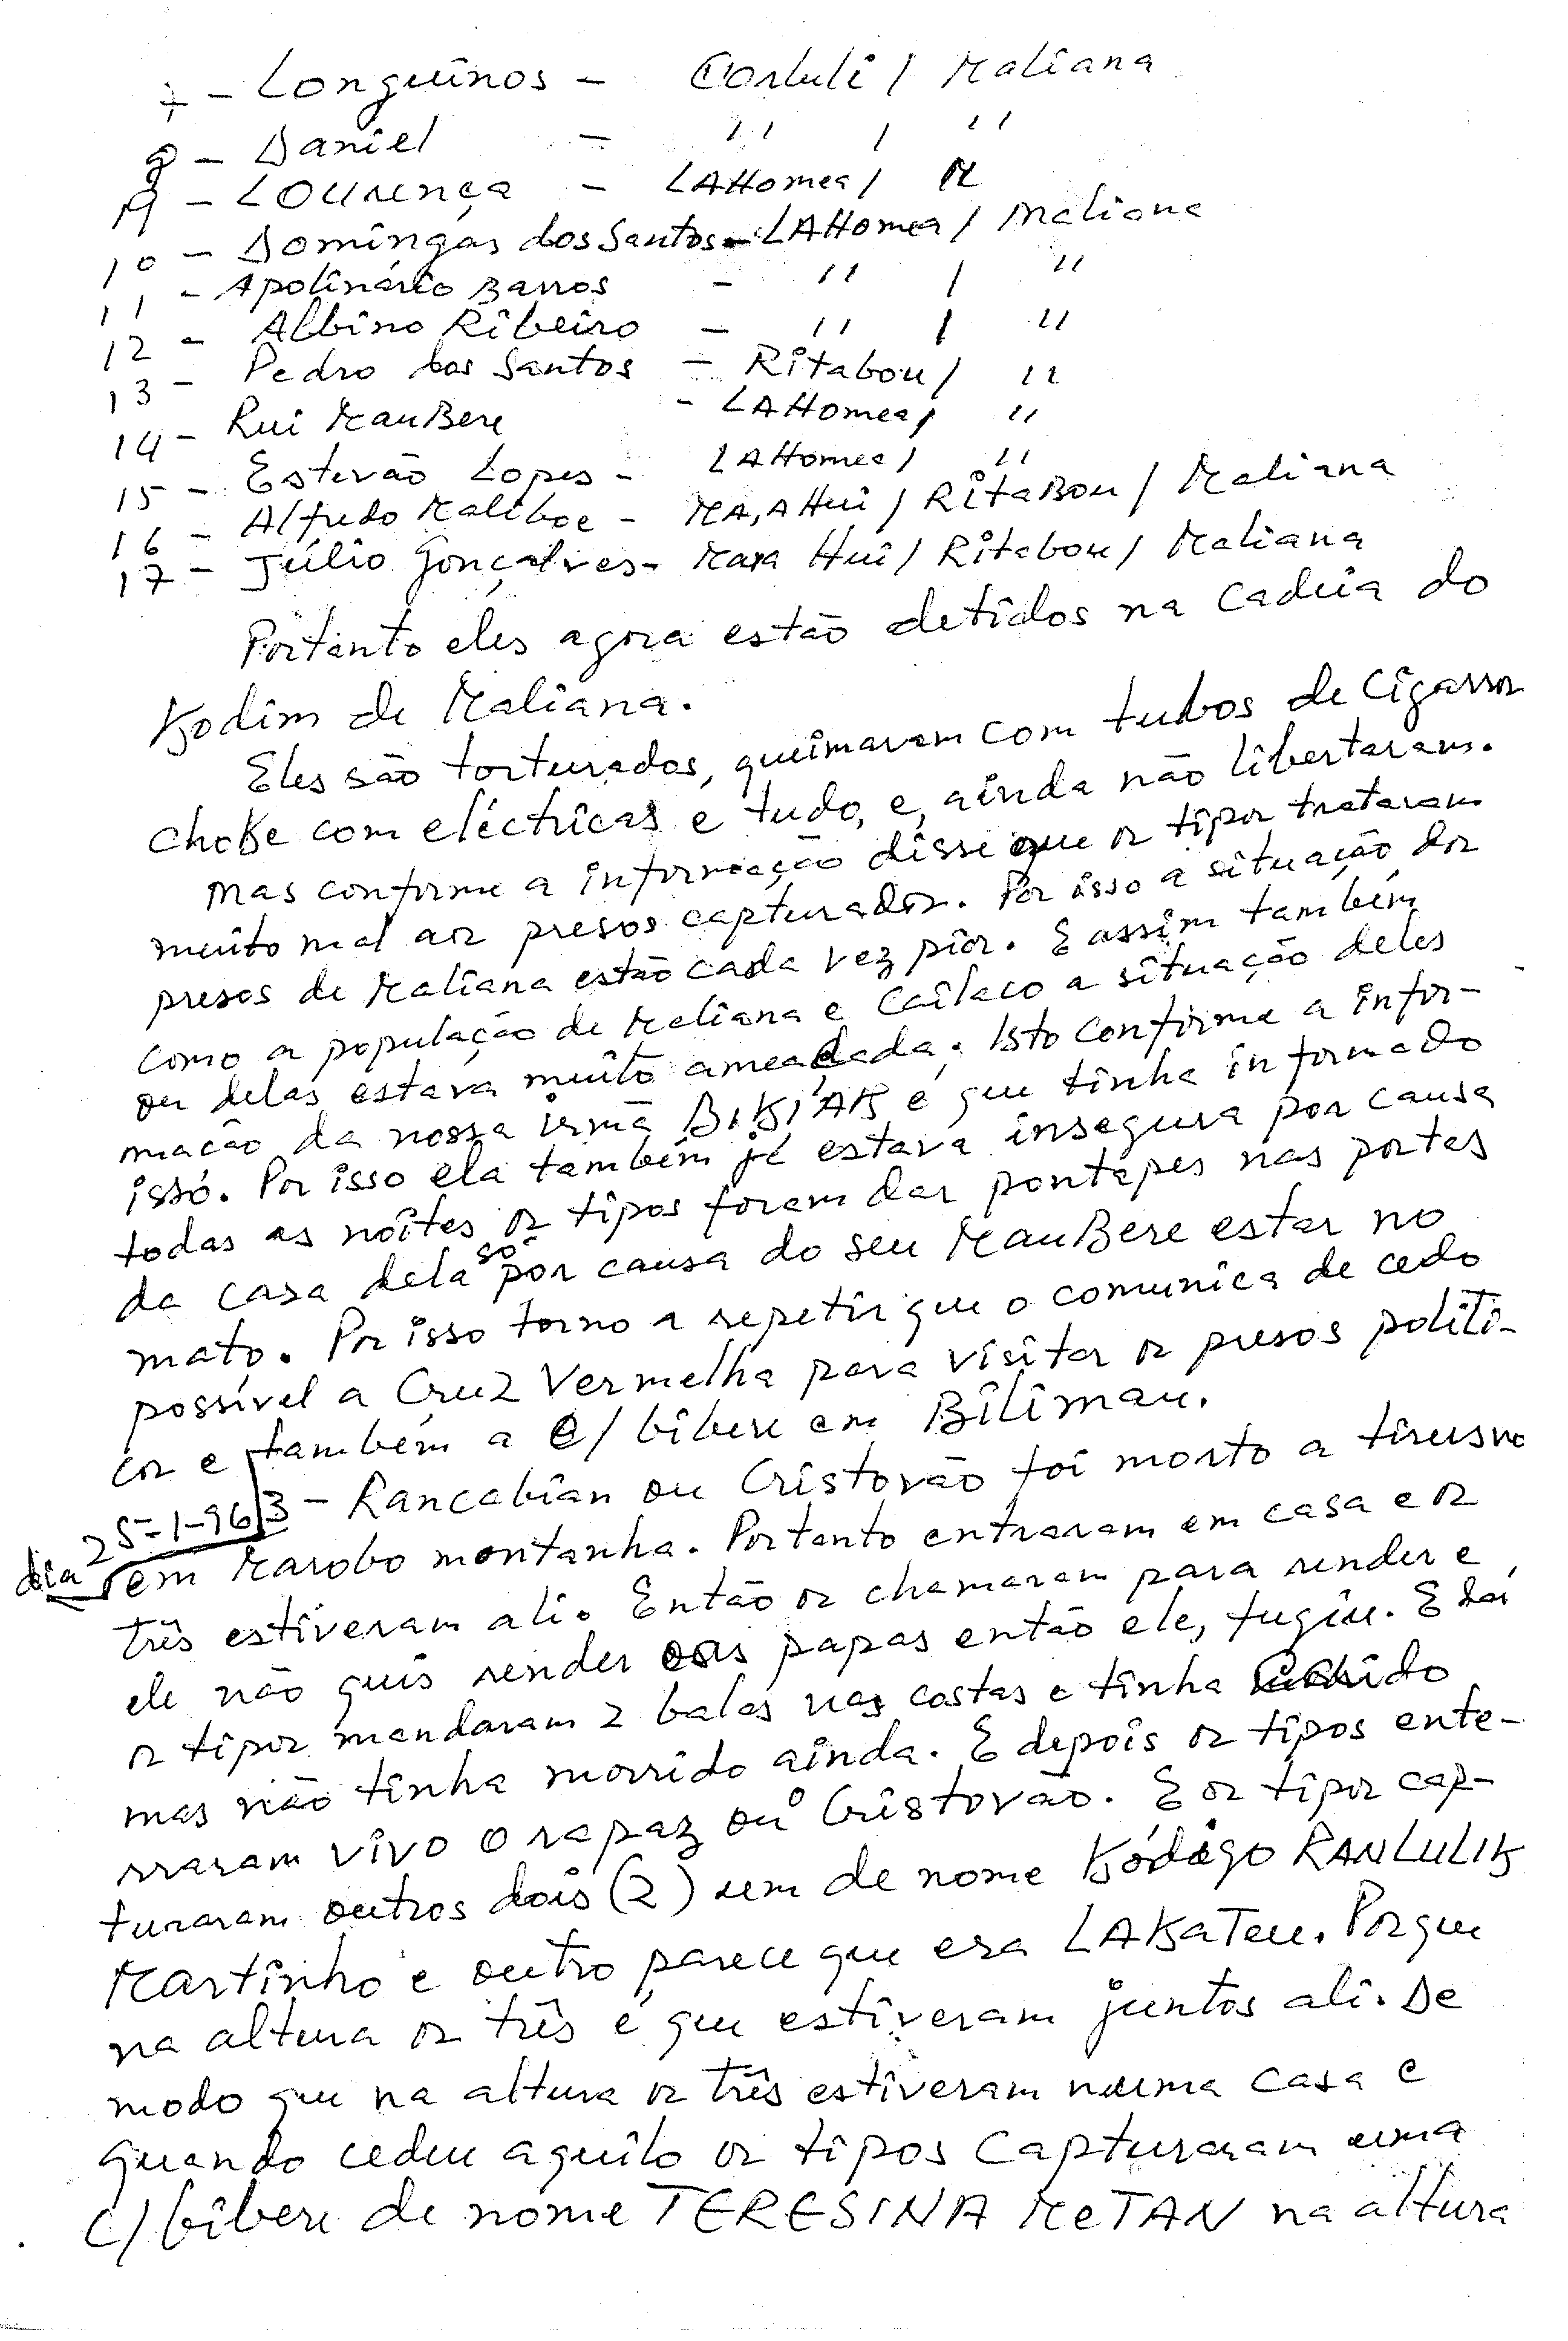 7 - Longuinos - Corluli / Maliana
8 - Daniel - " / "
9 - LOUrença - LAHomea / M
10 - Domingas dos Santos - LAHomea / Maliana
11 - Apolinário Barros - " / "
12 - Albino Ribeiro - " / "
13 - Pedro dos Santos - Ritabou / "
14 - Rui MauBere - LAHomea / "
15 - Estevão Lopes - LAHomea / "
16 - Alfredo Maliboe - MA,AHui / RitaBou / Maliana
17 - Júlio Gonçalves - Maa Hui / Ritabou / Maliana
Portanto eles agora estão detidos na cadeia do
Kodim de Maliana.
Eles são torturados, queimaram com tubos de Cigarros
choke com eléctricas e tudo, e, ainda não libertaram.
Mas conforme a informação disse que os tipos trataram
muito mal aos presos capturados. Por isso a situação dos
presos de Maliana estão cada vez pior. E assim também
como a população de Maliana e Cailaco a situação deles
ou delas estava muito ameaçada. Isto conforme a infor-
mação da nossa irmã BIKI'AK é que tinha informado
isso. Por isso ela também já estava insegura por causa
todas as noites os tipos foram dar pontapes nas portas
da casa dela só por causa do seu MauBere estar no
mato. Por isso torno a repetir que o comunica de cedo
possível a Cruz Vermelha para visitar os presos politi-
cos e também a C/ bibere em Bilimau.
dia 25-1-96 3 - Rancabian ou Cristovão foi morto a tirus no
em Marobo montanha. Portanto entraram em casa e os
três estiveram ali. Então os chamaram para render e
ele não quis render aos papas então ele, fugiu. E daí
os tipos mandaram 2 balas nas costas e tinha
mas não tinha morrido ainda. E depois os tipos ente-
rraram vivo o rapaz ou Cristovão. E os tipos cap-
turaram outros dois (2) um de nome Kódigo RANLULIK
Martinho e outro parece que era LAKaTeu. Porque
na altura os três é que estiveram juntos ali. De
modo que na altura os três estiveram numa casa e
quando cedeu aquilo os tipos capturaram uma
C/ bibere de nome TERESINA MeTAN na altura